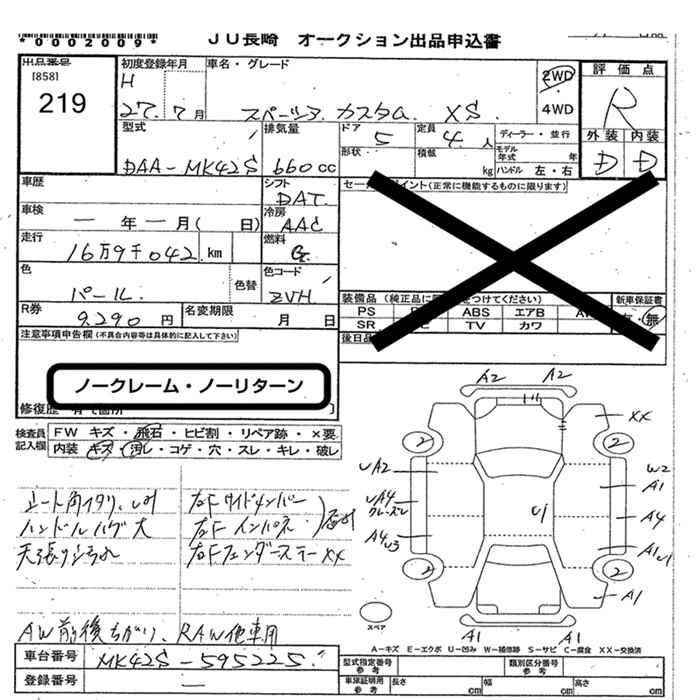 *0002009*
JU長崎 オークション出品申込書
出品番号
[858]
219
初度登録年月
H
27年 7月
車名・グレード
スペーシア カスタム XS
2WD
4WD
評価点
R
外装 内装
D D
型式
DAA-MK42S
排気量
660 cc
ドア 5
形状
定員 4人
積載 kg
ディーラー・並行
モデル年式 年
ハンドル 左・右
車歴
シフト
DAT
車検
一年一月( 日)
冷房
AAC
走行
16万9千042 km
燃料
G
色
パール
色替
色コード
ZVH
R券
9290円
名変期限
月 日
セールスポイント(正常に機能するものに限ります)
装備品
PS ABS エアB
SR TV カワ
新車保証書
有・無
後日品
注意事項申告欄(不具合内容等は具体的に記入して下さい)
ノークレーム・ノーリターン
修復歴
検査員記入欄
FW キズ・飛石・ヒビ割・リペア跡・×要
内装 キズ・汚レ・コゲ・穴・スレ・キレ・破レ
ハンドルハゲ大
左Fワイドメンバー
左Fインパネ
左Fフェンダーステー XX
AW前後ちがい、RAW他車用
車台番号
MK42S-595225
登録番号
—
A2 A2
XX
2 2
UA2
UA4
W2
A1
A4
U1
A4 U3
A1 U1
2 2
A1
A1 A1
スペア
A=キズ E=エクボ U=凹み W=補修跡 S=サビ C=腐食 XX=交換済
型式指定番号 参考
類別区分番号 参考
車庫証明用 参考
長さ cm
幅 cm
高さ cm